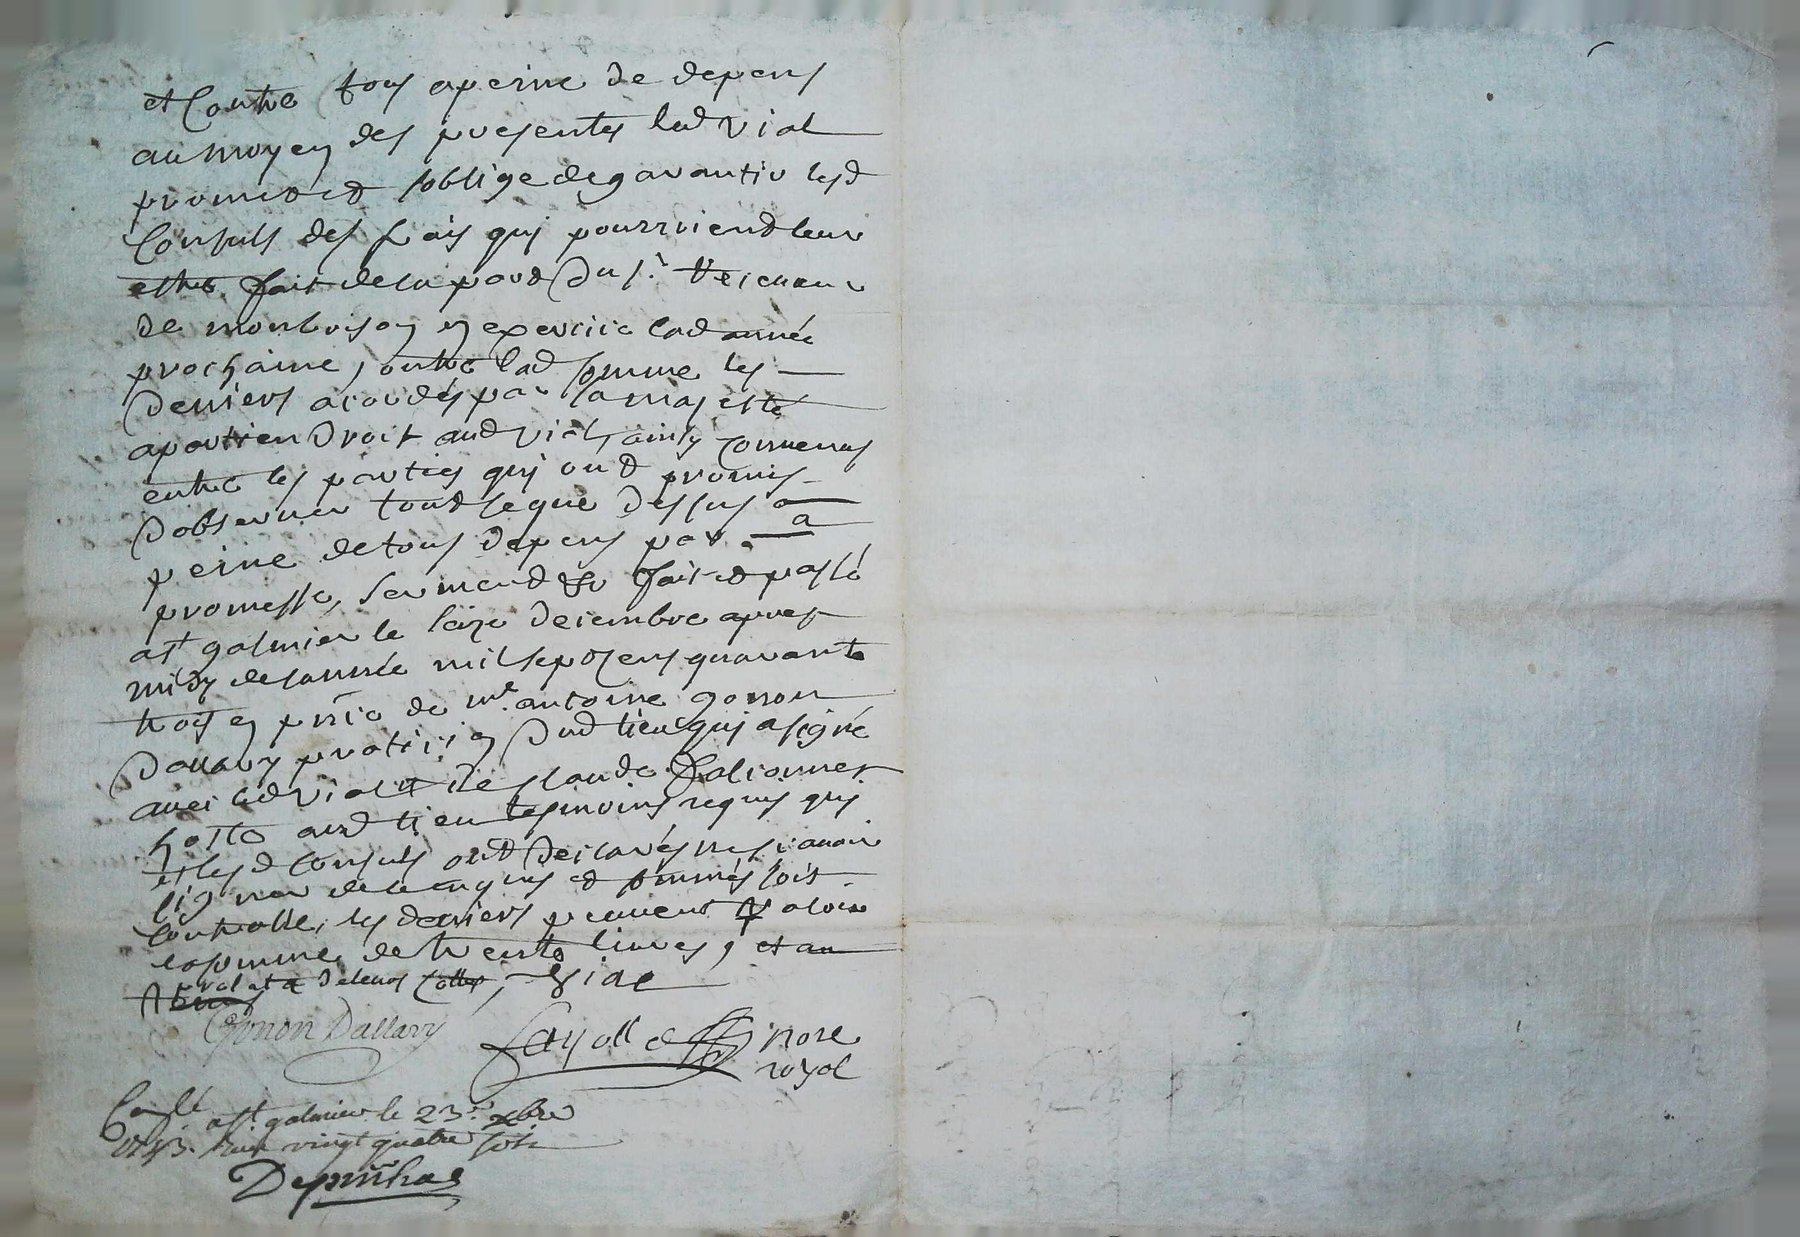 et Contre tous a peine de depens
au moyen des presentes led vial
promet et soblige de garantir lesd
Consuls des frais quj pourroient leur
estre fait de la part du sr.
de montbrison en exercice lad année
prochaine, outre lad somme les
deniers acordés par sa majesté
apartiendroit aud vial, ainsy convenus
entre les parties quj ont promis
dobserver tout ce que dessus a
peine de tous depens par
promesse, serment &c fait et passé
a st galmier le seize decembre apres
midy de lannée mil sept cens quarante
trois en pñce de me. antoine gonon
dallavy praticien dud lieu quj a signé
avec led vial et de claude falconnet
hotte aud lieu tesmoins requis quj
et lesd consuls ont declarés ne scavoir
signer de ce enquis et sommés soit
controllé, les deniers peuvent valoir
la somme de trente livres, et au
vial
Gonon Dallavy
Fayolle nore
royal
Conlé a st galmier le 23e xbre
1743. Reçu vingt quatre sols